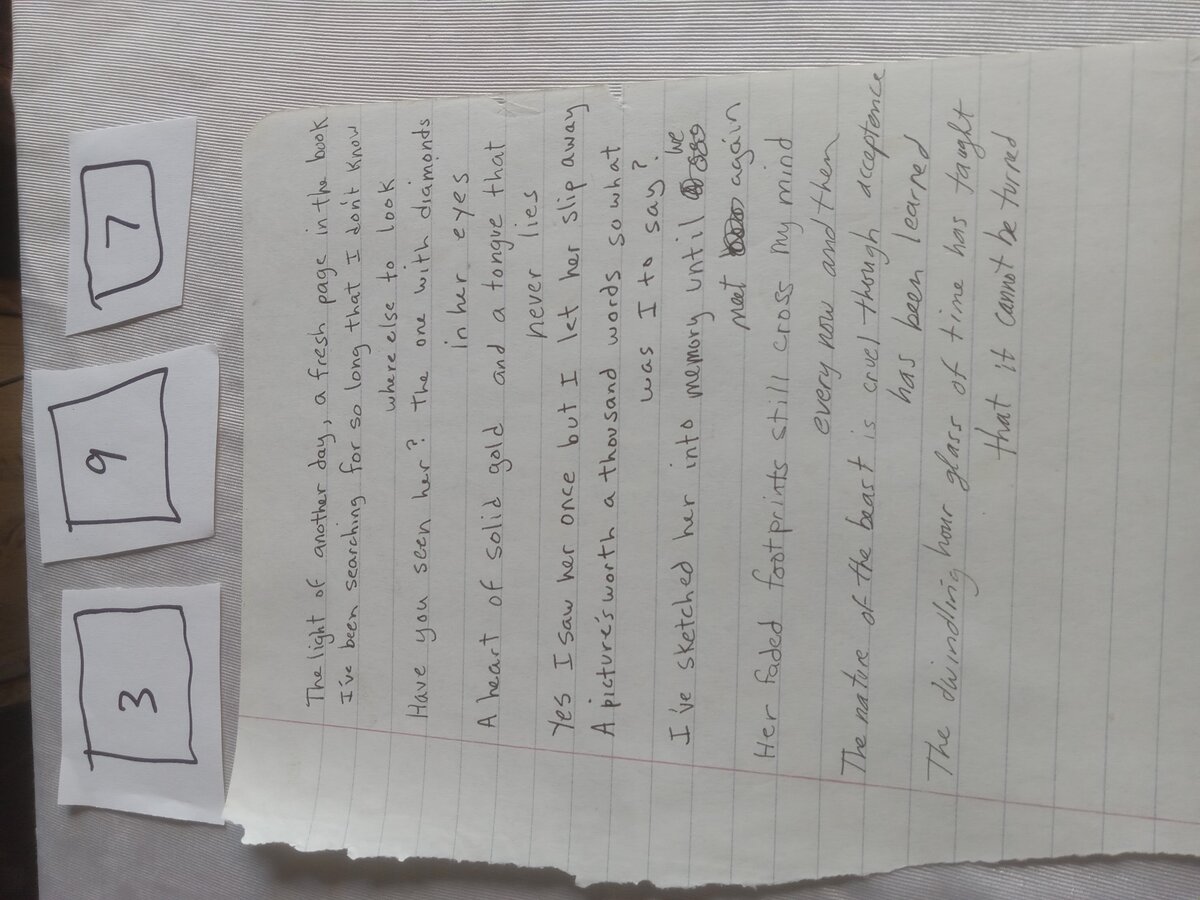 3
9
7
The light of another day, a fresh page in the book
I've been searching for so long that I don't know
where else to look
Have you seen her? The one with diamonds
in her eyes
A heart of solid gold and a tongue that
never lies
Yes I saw her once but I let her slip away
A picture's worth a thousand words so what
was I to say?
I've sketched her into memory until we
meet again
Her faded footprints still cross my mind
every now and then
The nature of the beast is cruel though acceptence
has been learned
The dwindling hour glass of time has taught
that it cannot be turned